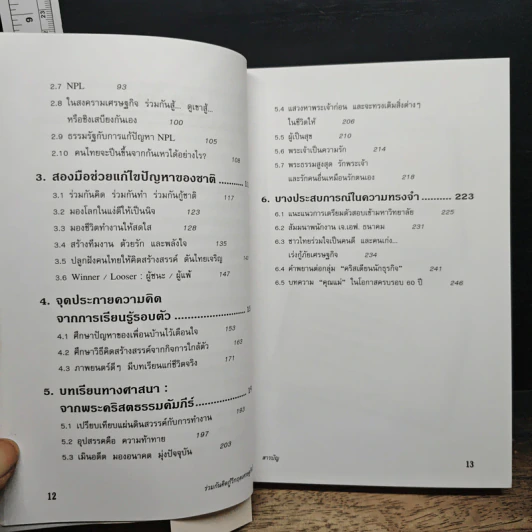 2.7 NPL 93
2.8 ในสงครามเศรษฐกิจ ร่วมกันสู้... ดูเขาสู้...
หรือชิงเสบียงกันเอง 100
2.9 ธรรมรัฐกับการแก้ปัญหา NPL 105
2.10 คนไทยจะปีนขึ้นจากก้นเหวได้อย่างไร? 108
3. สองมือช่วยแก้ไขปัญหาของชาติ
3.1 ร่วมกันคิด ร่วมกันทำ ร่วมกันกู้ชาติ 117
3.2 มองโลกในแง่ดีให้เป็นนิจ 123
3.3 มองชีวิตทำงานให้สดใส 128
3.4 สร้างทีมงาน ด้วยรัก และพลังใจ 135
3.5 ปลูกฝังคนไทยให้คิดสร้างสรรค์ ดันไทยเจริญ 145
3.6 Winner / Looser : ผู้ชนะ / ผู้แพ้ 147
4. จุดประกายความคิด
จากการเรียนรู้รอบตัว
4.1 ศึกษาปัญหาของเพื่อนบ้านไว้เตือนใจ 153
4.2 ศึกษาวิธีคิดสร้างสรรค์จากกิจการใกล้ตัว 163
4.3 ภาพยนตร์ดีๆ มีบทเรียนแก่ชีวิตจริง 171
5. บทเรียนทางศาสนา :
จากพระคริสตธรรมคัมภีร์
5.1 เปรียบเทียบแผ่นดินสวรรค์กับการทำงาน 193
5.2 อุปสรรคคือ ความท้าทาย 197
5.3 เมินอดีต มองอนาคต มุ่งปัจจุบัน 203
12
5.4 แสวงหาพระเจ้าก่อน และจะทรงเติมสิ่งต่างๆ
ในชีวิตให้ 206
5.5 ผู้เป็นสุข 210
5.6 พระเจ้าเป็นความรัก 214
5.7 พระธรรมสูงสุด รักพระเจ้า
และรักคนอื่นเหมือนรักตนเอง 218
6. บางประสบการณ์ในความทรงจำ .......... 223
6.1 แนะแนวการเตรียมตัวสอบเข้ามหาวิทยาลัย 225
6.2 สัมมนาพนักงาน เจ.เอฟ. ธนาคม 231
6.3 ชาวไทยร่วมใจเป็นคนดี และคนเก่ง...
เร่งกู้ภัยเศรษฐกิจ 234
6.4 คำพยานต่อกลุ่ม "คริสเตียนนักธุรกิจ" 241
6.5 บทความ "คุณแม่" ในโอกาสครบรอบ 60 ปี 246
สารบัญ 13